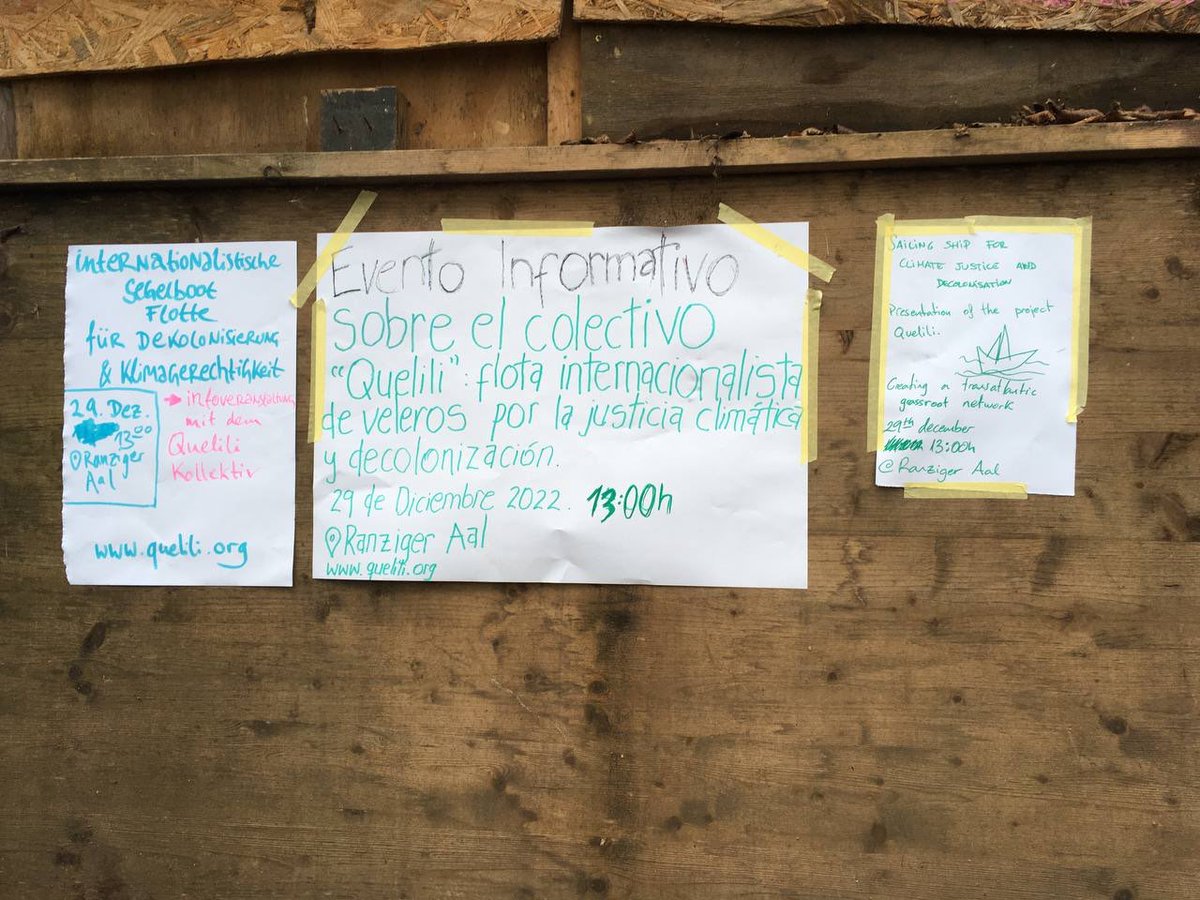 internationalistische
Segelboot
Flotte
für Dekolonisierung
& Klimagerechtigkeit
29. Dez.
13:00
Ranziger
Aal
→ infoveranstaltung
mit dem
Quelili
Kollektiv
www.quelili.org
Evento Informativo
sobre el colectivo
"Quelili": flota internacionalista
de veleros por la justicia climática
y decolonización.
29 de Diciembre 2022. 13:00h
Ranziger Aal
www.quelili.org
SAILING SHIP FOR
CLIMATE JUSTICE AND
DECOLONISATION
Presentation of the project
Quelili.
Creating a transatlantic
grassroot network
29th december
13:00h
@Ranziger Aal